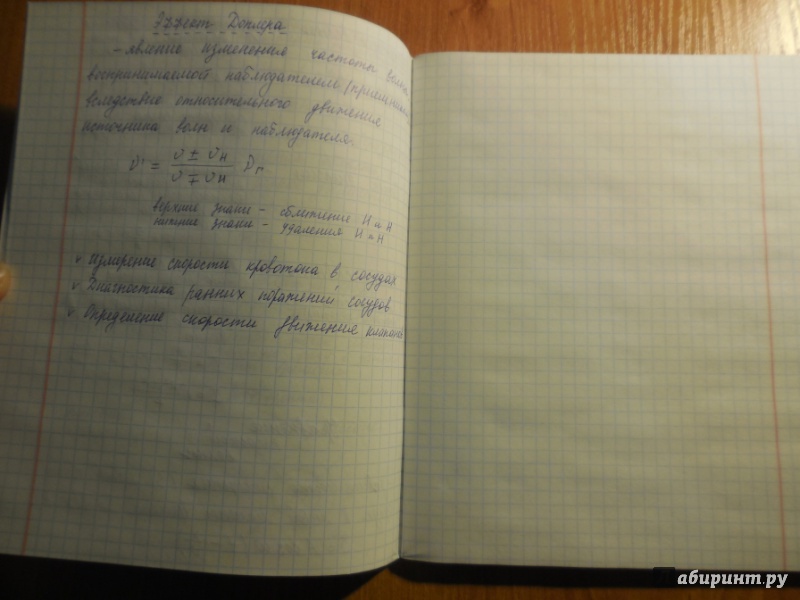 Эффект Доплера
- явление изменения частоты волн,
воспринимаемой наблюдателем (приемником)
вследствие относительного движения
источника волн и наблюдателя.
ν' = (v ± vн)/(v ∓ vн) νг
верхние знаки - сближение И и Н
нижние знаки - удаления И и Н
v Измерение скорости кровотока в сосудах
v Диагностика ранних поражений сосудов
v Определение скорости движения клапанов
Лабиринт.ру